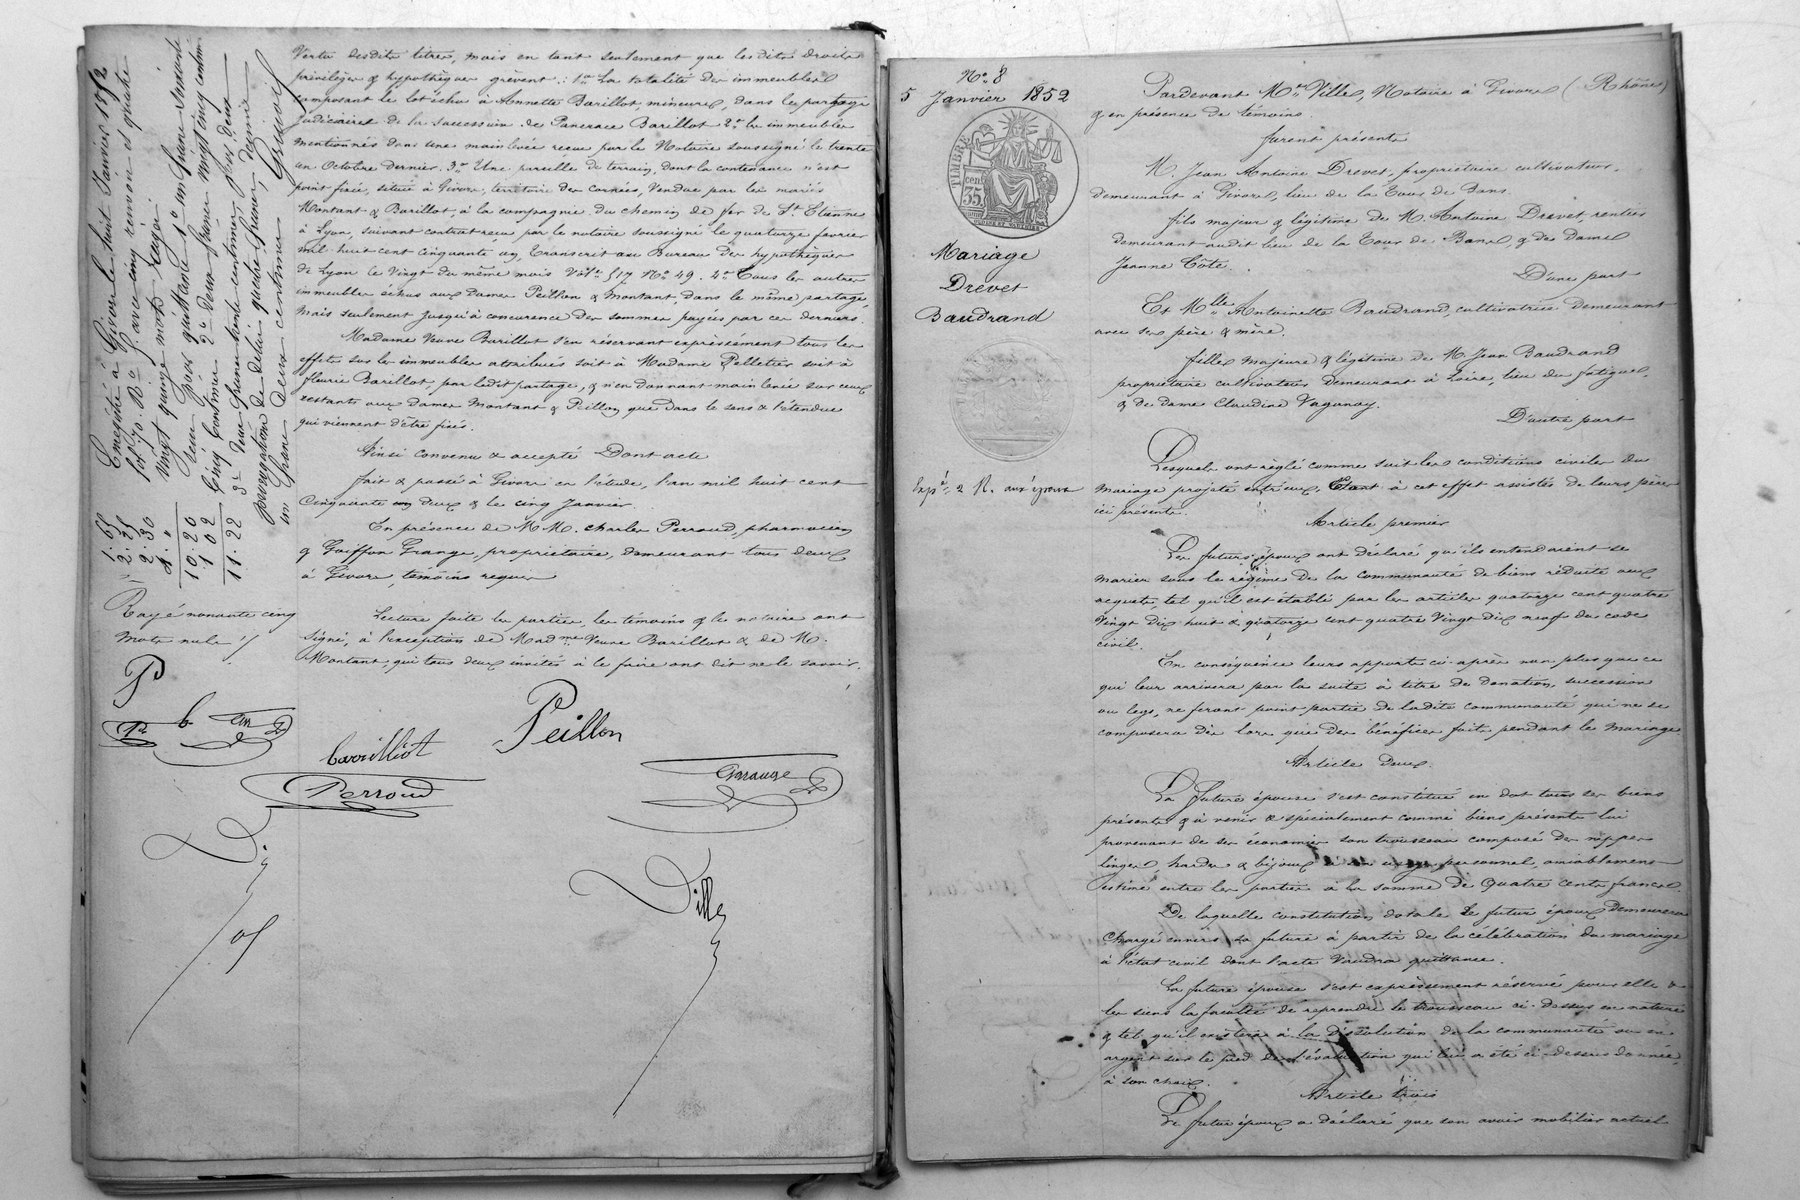 Vertu desdits titres, mais en tant seulement que lesdits droits
privilèges & hypothèques grèvent : 1° La totalité des immeubles
composant le lot échu à Annette Barillot, mineure, dans le partage
judiciaire de la succession de Pancrace Barillot 2° les immeubles
mentionnés dans une mainlevée reçue par le Notaire soussigné le trente
un Octobre dernier. 3° Une parcelle de terrain, dont la contenance n'est
point fixée, située à Givors, territoire des cornées, Vendue par les mariés
Montant & Barillot, à la compagnie du chemin de fer de St. Etienne
à Lyon, suivant contrat reçu par le notaire soussigné le quatorze février
mil huit cent cinquante un, Transcrit au Bureau des hypothèques
de Lyon le Vingt du même mois Vol. 517 No 49. 4° Tous les autres
immeubles échus aux Dames Peillon & Montant, dans le même partage,
mais seulement jusqu'à concurence des sommes payées par ces derniers.
Madame Veuve Barillot s'en réservant expressément tous les
effets sur les immeubles attribués soit à Madame Pelletier soit à
fleurie Barillot, par ledit partage, & n'en donnant mainlevée sur ceux
restants aux Dames Montant & Peillon que dans le sens & l'étendue
qui viennent d'être fixés.
Ainsi convenu & accepté Dont acte
fait & passé à Givors en l'étude, l'an mil huit cent
Cinquante deux & le cinq Janvier.
En présence de MM. Charles Perroud, pharmacien
& Goiffon Grange, propriétaire, demeurant tous deux
à Givors, témoins requis
Lecture faite les parties, les témoins & le notaire ont
Signé, à l'exception de Madme Veuve Barillot & de M.
Montant, qui tous deux invités à le faire ont dit ne le savoir.
Enregistré à Givors le huit Janvier 1852
fol. 70. Ro. C. avec cinq renvois et quatre
Vingt quinze mots rayés.
Reçu pour quittance 1° un franc soixante
Cinq Centimes 2° deux francs vingt cinq centimes
3° deux francs trente centimes, pour deux
un franc deux centimes
1. 65
2. 25
2. 30
4. "
10. 20
1 02
11. 22
Rayé nonante cinq
mots nuls
P
b
barrilliot
Peillon
Perroud
Grange
Ville
No 8
5 Janvier 1852
TIMBRE
35
Mariage
Drevet
Baudrand
Expé. 2 R. aux époux
Pardevant Me Ville, Notaire à Givors (Rhône)
& en présence de témoins.
furent présents
M. Jean Antoine Drevet, propriétaire cultivateur,
demeurant à Givors, lieu de la Tour de Bans.
fils majeur & légitime de M. Antoine Drevet, rentier
demeurant audit lieu de la Tour de Bans & des Dame
Jeanne Côte.
D'une part
Et Mlle Antoinette Baudrand, cultivatrice demeurant
avec ses père & mère.
fille majeure & légitime de M. Jean Baudrand
propriétaire cultivateur demeurant à Loire, lieu du fatiguet,
& de dame Claudine Vaganay.
D'autre part
Lesquels ont réglé comme suit les conditions civiles du
mariage projeté entr'eux, Etant à cet effet assistés de leurs pères
ici présents.
Article premier
Les futurs époux ont déclaré qu'ils entendaient se
marier sous le régime de la communauté de biens réduite aux
acquets, tel qu'il est établi par les articles quatorze cent quatre
Vingt dix huit & quatorze cent quatre Vingt dix neuf du code
civil.
En conséquence leurs apports ci-après non plus que ce
qui leur arrivera par la suite à titre de donation, succession
ou legs, ne feront point partie de ladite communauté qui ne se
composera dès lors que des bénéfices faits pendant le mariage
Article deux.
La future épouse s'est constitué en dot tous ses biens
présents & à venir & spécialement comme biens présents lui
provenant de ses économies son trousseau composé de nippes
linges, hardes & bijoux à son usage personnel, amiablement
estimé entre les parties à la somme de Quatre cents francs
De laquelle constitution dotale le futur époux demeurera
Chargé envers sa future à partir de la célébration du mariage
à l'état civil dont l'acte Vaudra quittance.
La future épouse s'est expressément réservé pour elle &
les siens la faculté de reprendre le trousseau ci-dessus en nature
& tel qu'il existera à la dissolution de la communauté ou en
argent sur le pied de l'évaluation qui lui a été ci-dessus donnée
à son choix.
Article trois
Le futur époux a déclaré que son avoir mobilier actuel